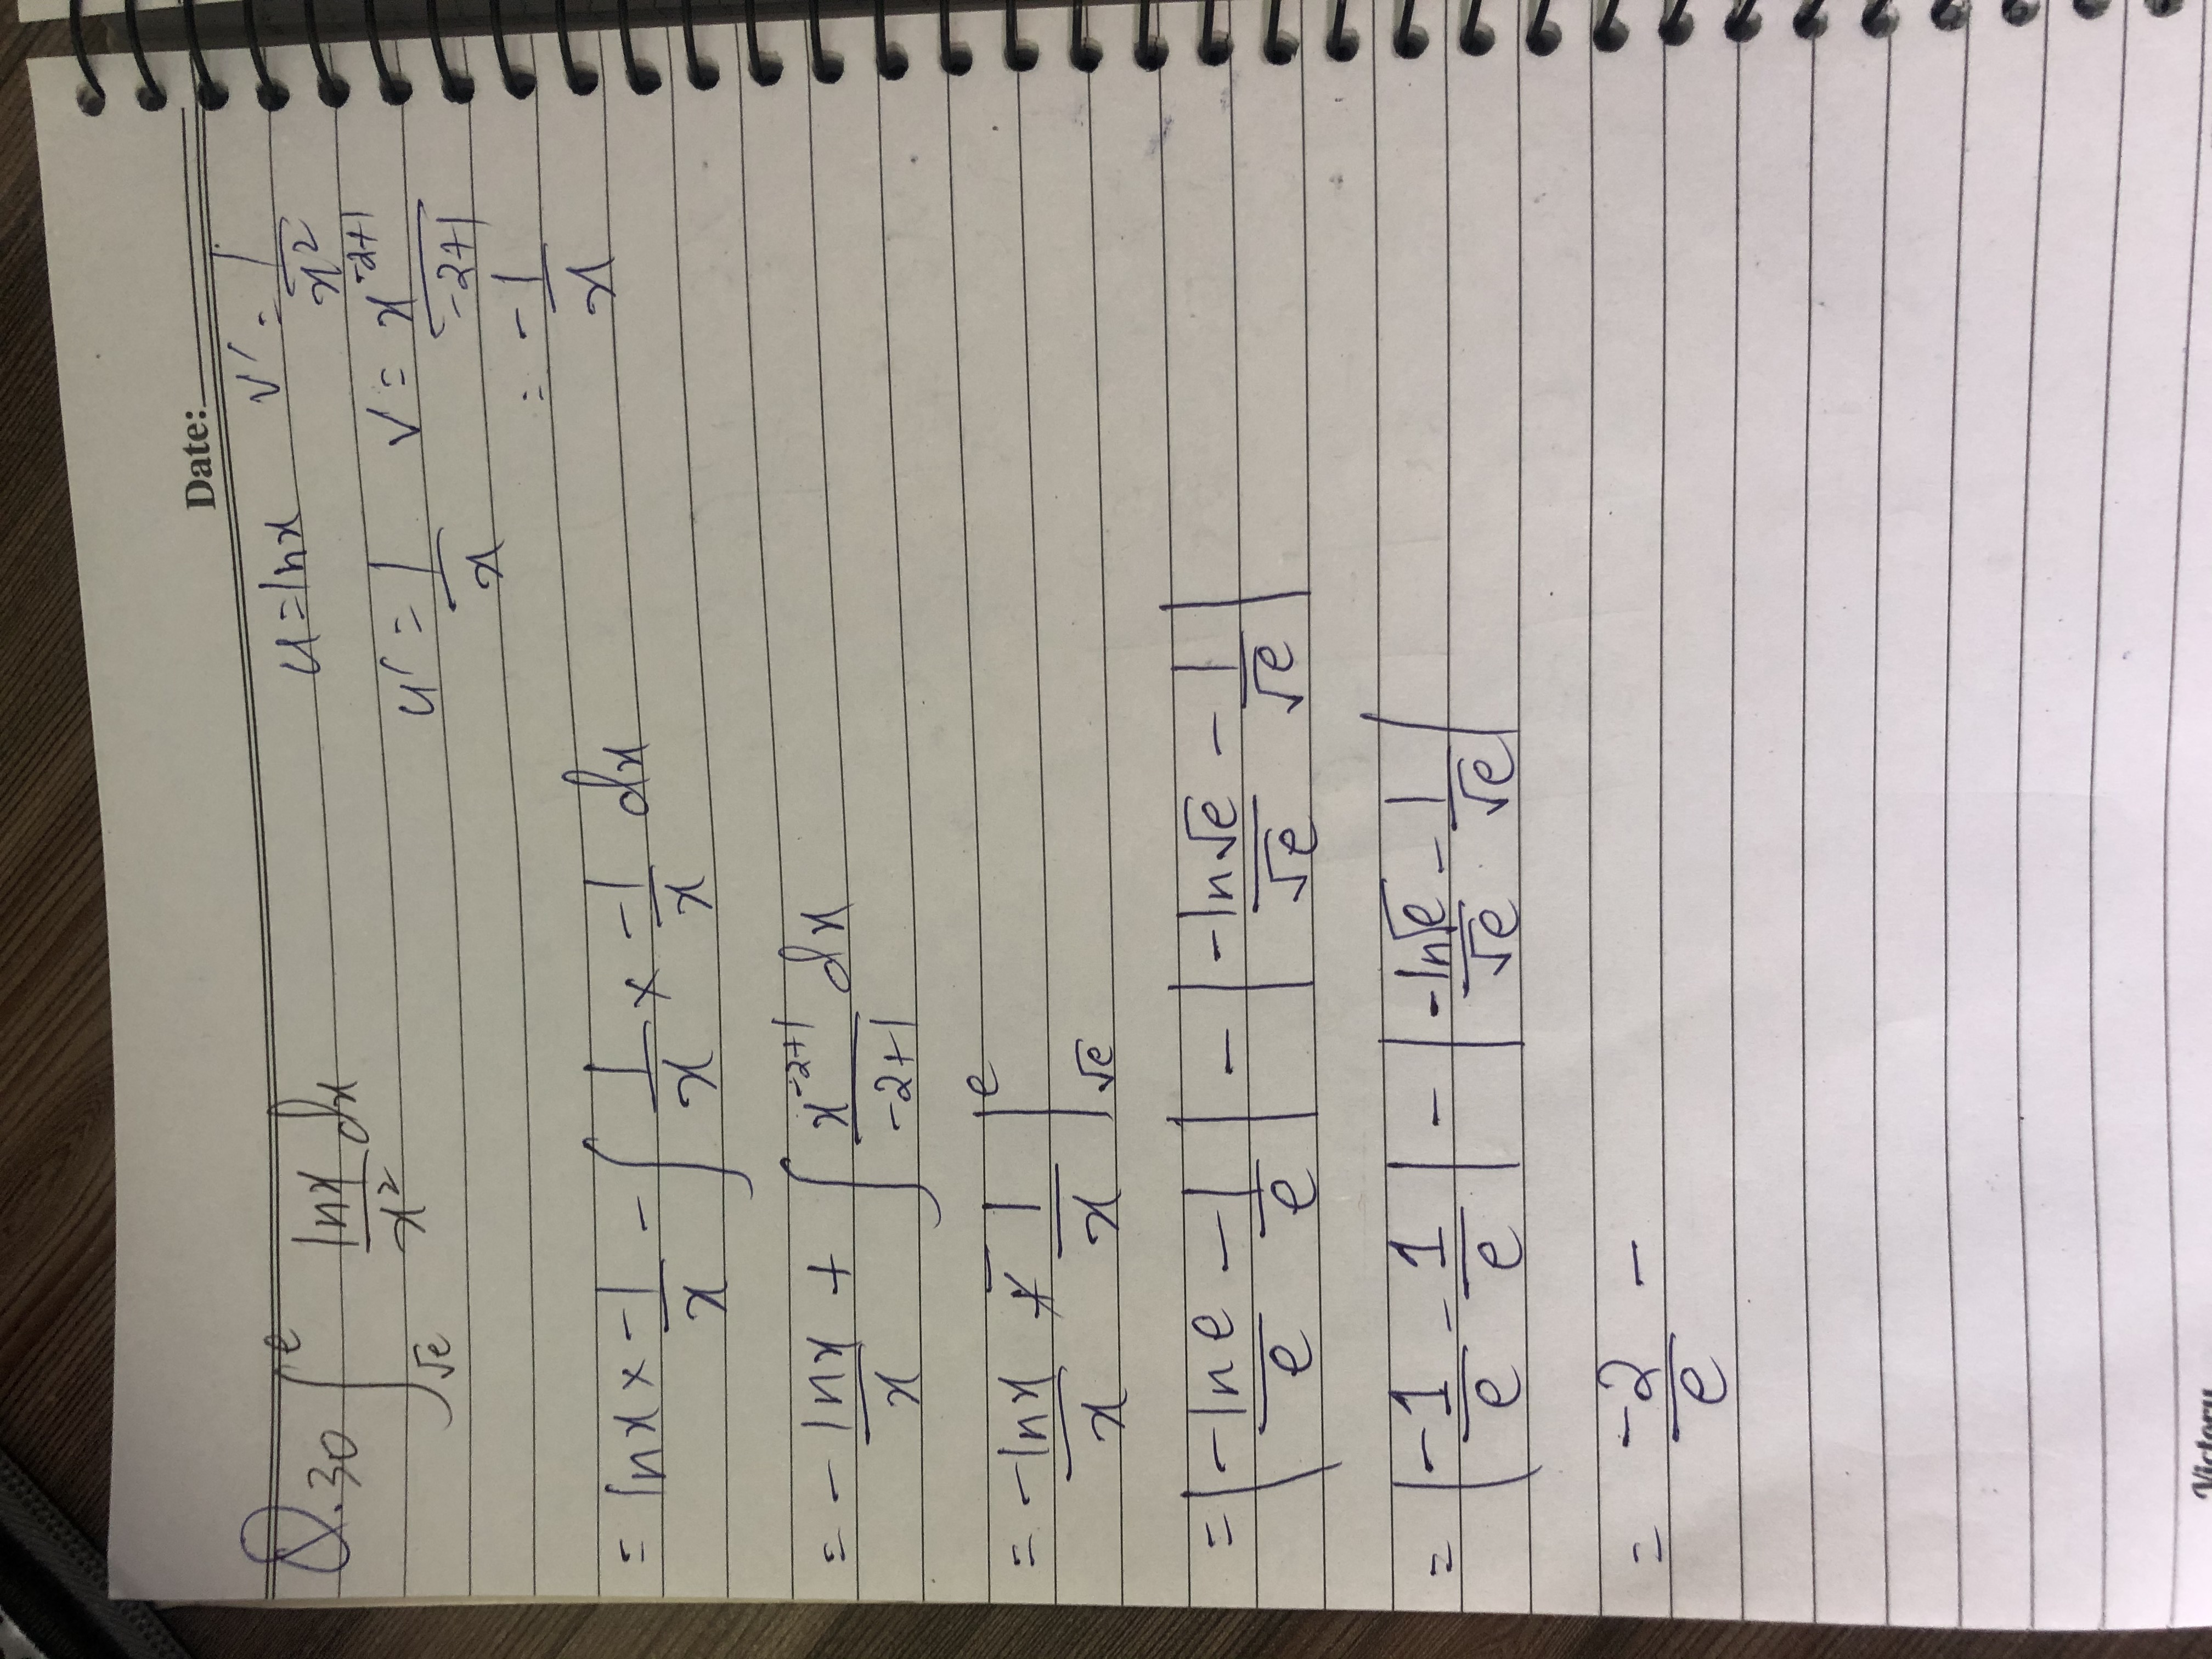 Date:
Q.30 ∫_{√e}^{e} lnx/x² dx
u = lnx v' = 1/x²
u' = 1/x v = x^{-2+1}/-2+1
= -1/x
= lnx × -1/x - ∫ 1/x × -1/x dx
= - lnx/x + ∫ x^{-2+1}/-2+1 dx
= -lnx/x - 1/x |_{√e}^{e}
= | -ln e/e - 1/e | - | -ln√e/√e - 1/√e |
= | -1/e - 1/e | - | -ln√e/√e - 1/√e |
= -2/e -
Victory